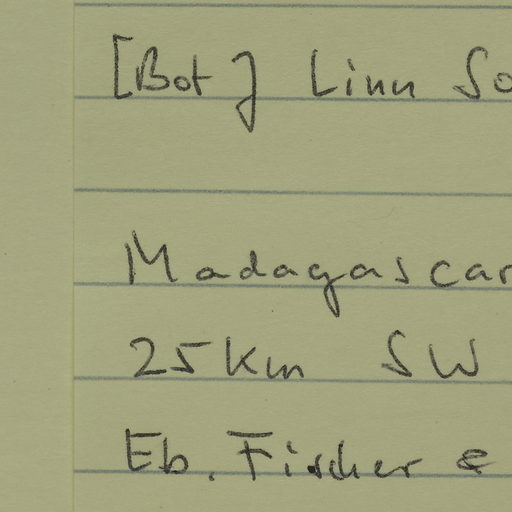 [Bot] Linn So
Madagascar
25 km SW
Eb. Fischer &